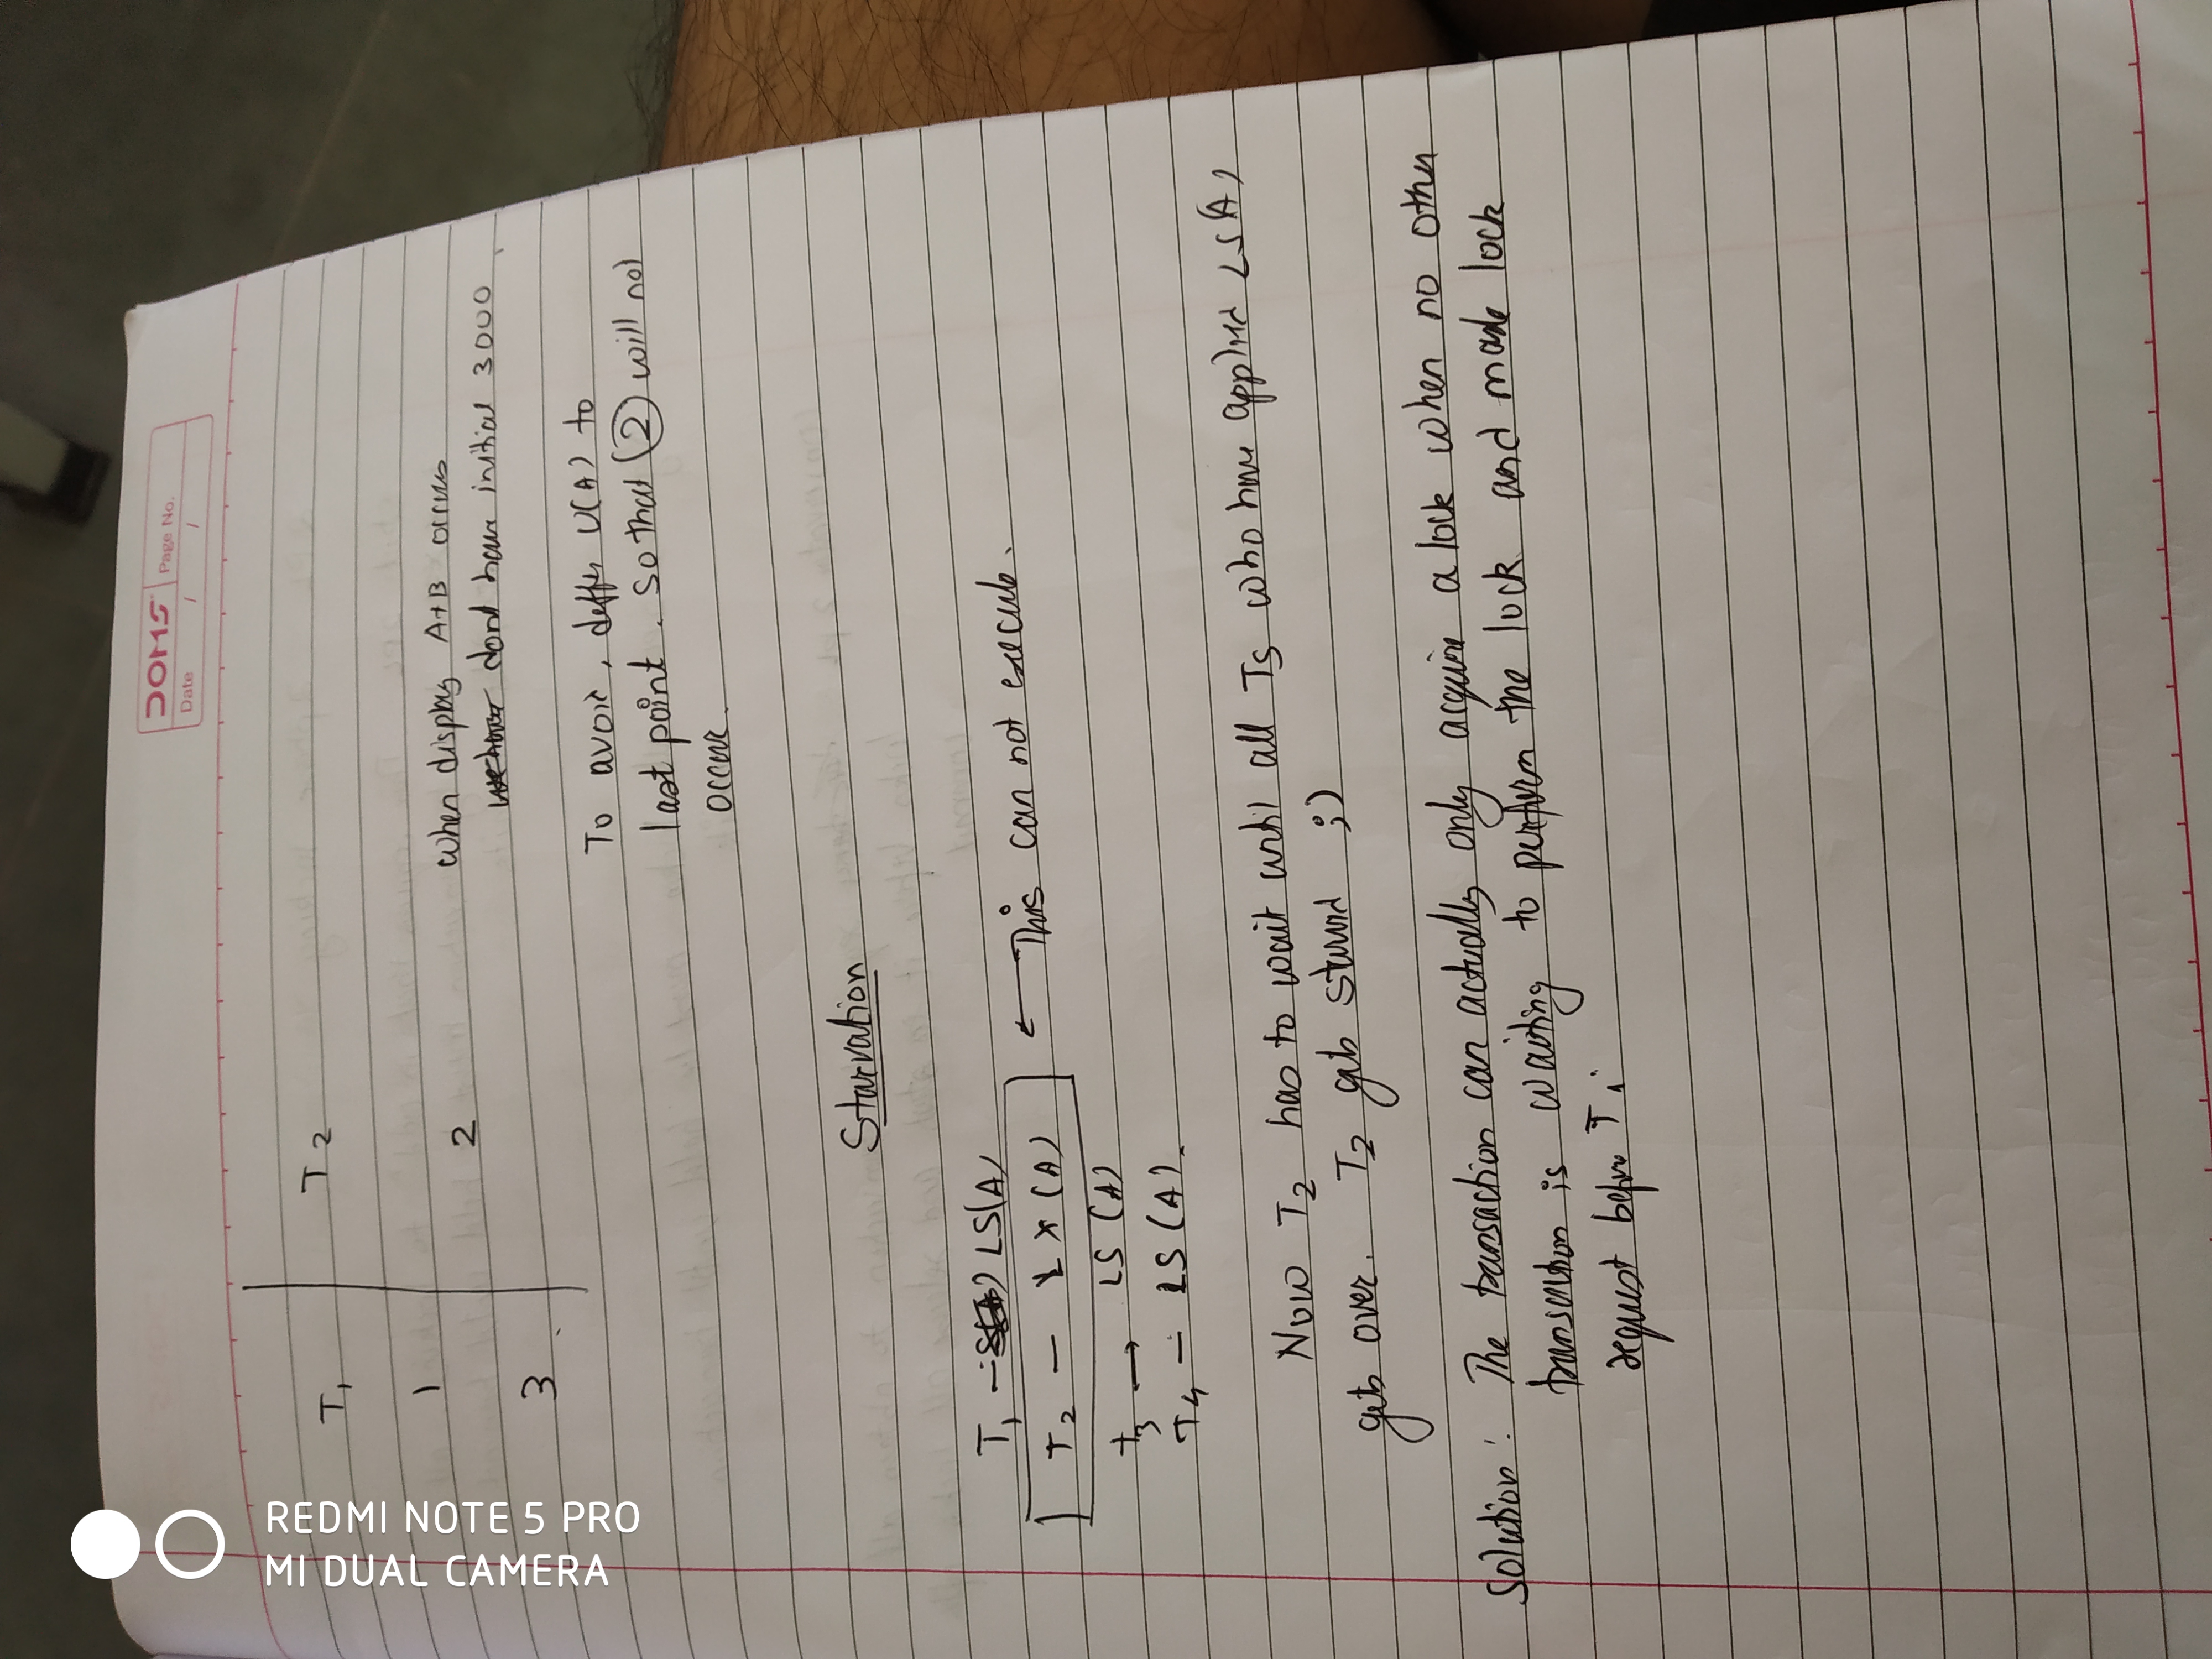 DOMS
Page No.
Date / /
T1 T2
1
2
3
when display A+B occurs
dont have initial 3000
To avoid, deffer U(A) to
last point. So that 2 will not
occur.
Starvation
T1 - LS(A)
T2 - LX(A) ← This can not execute.
T3 → LS(A)
T4 - LS(A).
Now T2 has to wait until all Ts who have applied LS(A)
gets over. T2 gets starved ;)
Solution: The transaction can actually only acquire a lock when no other
transaction is waiting to perform the lock and made lock
request before Ti
REDMI NOTE 5 PRO
MI DUAL CAMERA